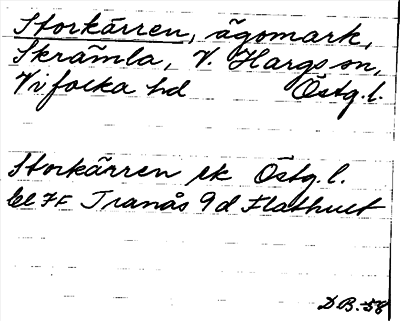 Storkärren, ägomark,
Skrämla, V. Hargs sn,
Vifolka hd Östg. l.
Storkärren ek Östg. l.
bl 7F Tranås 9d Flathult
D B. 58